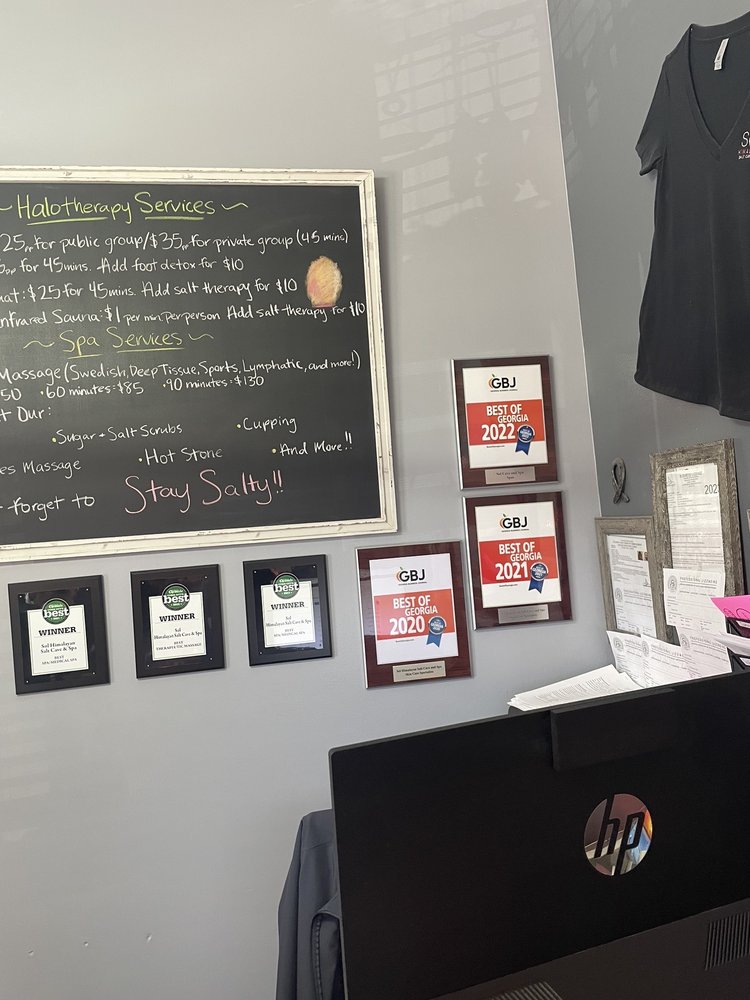 ~ Halotherapy Services ~
25pp for public group/$35pp for private group (45 mins)
for 45 mins. Add foot detox for $10
$25 for 45 mins. Add salt therapy for $10
Infrared Sauna: $1 per min per person Add salt therapy for $10
~ Spa Services ~
Massage (Swedish, Deep Tissue, Sports, Lymphatic, and more!)
50 • 60 minutes: $85 • 90 minutes: $130
Our:
• Sugar + Salt Scrubs • Cupping
Massage • Hot Stone • And More!!
forget to Stay Salty!!
GBJ
BEST OF
GEORGIA
2022
Sol Cave and Spa
GBJ
BEST OF
GEORGIA
2021
GBJ
BEST OF
GEORGIA
2020
Sol Himalayan Salt Cave and Spa
Skin Care Specialist
best
WINNER
Sol Himalayan
Salt Cave & Spa
BEST
SPA/MEDICAL SPA
best
WINNER
Sol
Himalayan Salt Cave & Spa
BEST
THERAPEUTIC MASSAGE
best
WINNER
Sol Himalayan
Salt Cave & Spa
BEST
SPA/MEDICAL SPA
202
hp